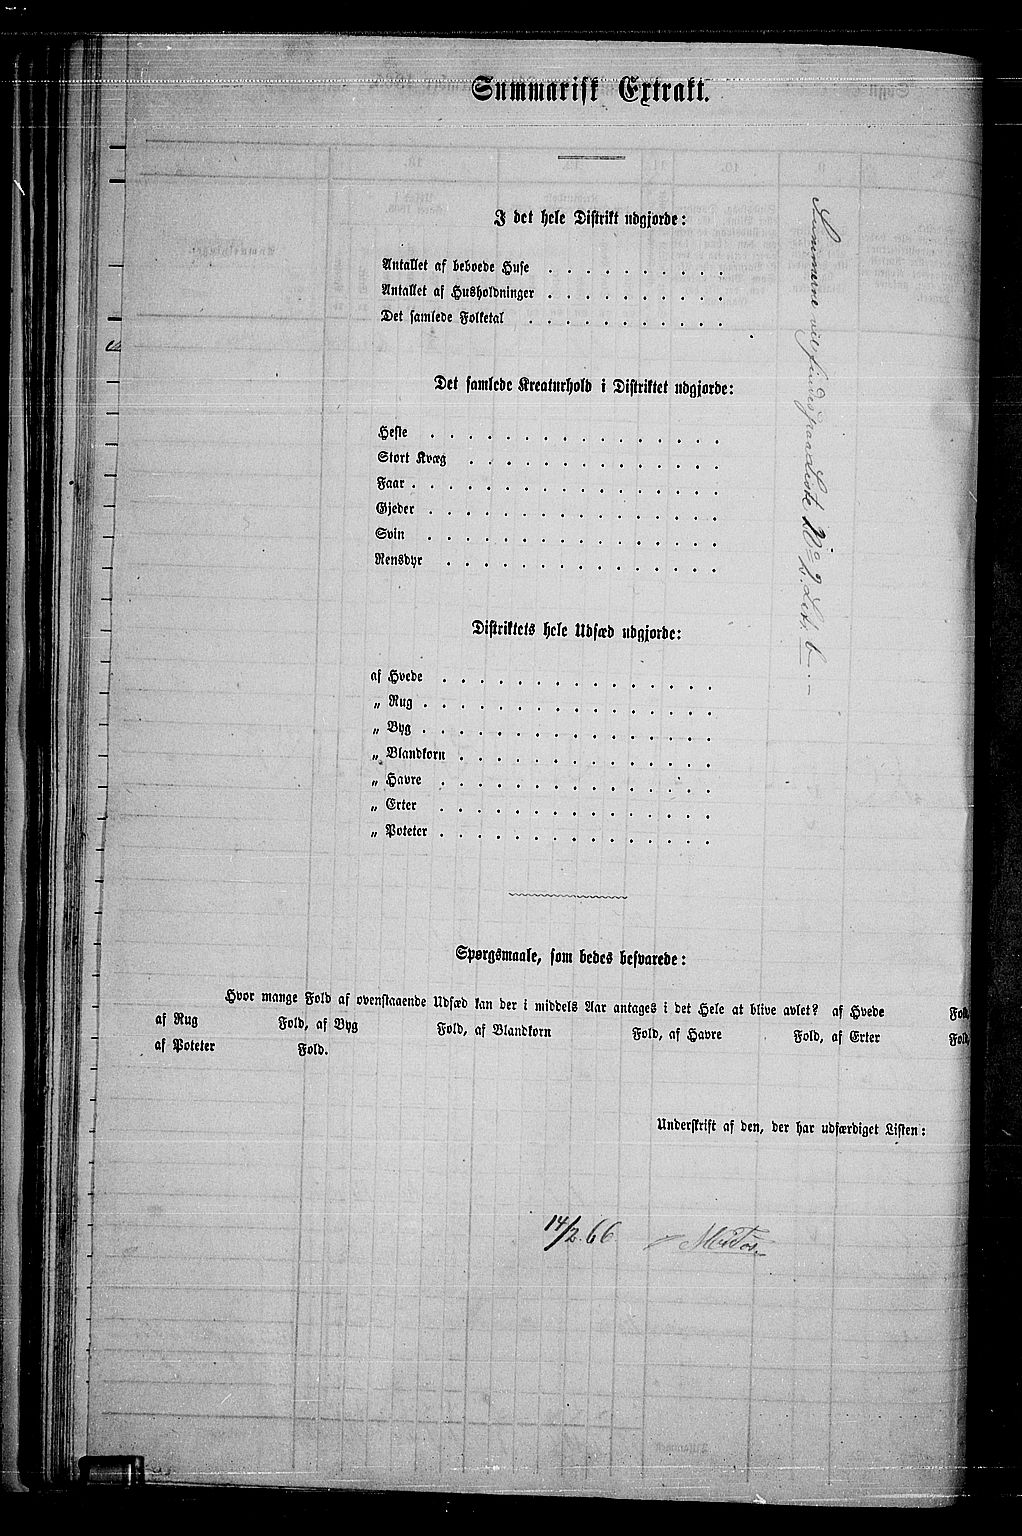 Summarisk Extrakt.
I det hele Distrikt udgjorde:
Antallet af beboede Huse . . . . . . . . . .
Antallet af Husholdninger . . . . . . . . . .
Det samlede Folketal . . . . . . . . . . .
Det samlede Kreaturhold i Distriktet udgjorde:
Heste . . . . . . . . . . . . . . . .
Stort Kvæg . . . . . . . . . . . . .
Faar . . . . . . . . . . . . . . . . .
Gjeder . . . . . . . . . . . . . . . .
Svin . . . . . . . . . . . . . . . .
Rensdyr . . . . . . . . . . . . . .
Distriktets hele Udsæd udgjorde:
af Hvede . . . . . . . . . . . . . .
„ Rug . . . . . . . . . . . . . . . .
„ Byg . . . . . . . . . . . . . . . .
„ Blandkorn . . . . . . . . . . . . .
„ Havre . . . . . . . . . . . . . .
„ Erter . . . . . . . . . . . . . . .
„ Poteter . . . . . . . . . . . . . .
Summerne vil findes paa Liste No 2. Litr. b. –
Spørgsmaale, som bedes besvarede:
Hvor mange Fold af ovenstaaende Udsæd kan der i middels Aar antages i det Hele at blive avlet? af Hvede Fold,
af Rug Fold, af Byg Fold, af Blandkorn Fold, af Havre Fold, af Erter Fold,
af Poteter Fold.
Underskrift af den, der har udfærdiget Listen:
14/2 66